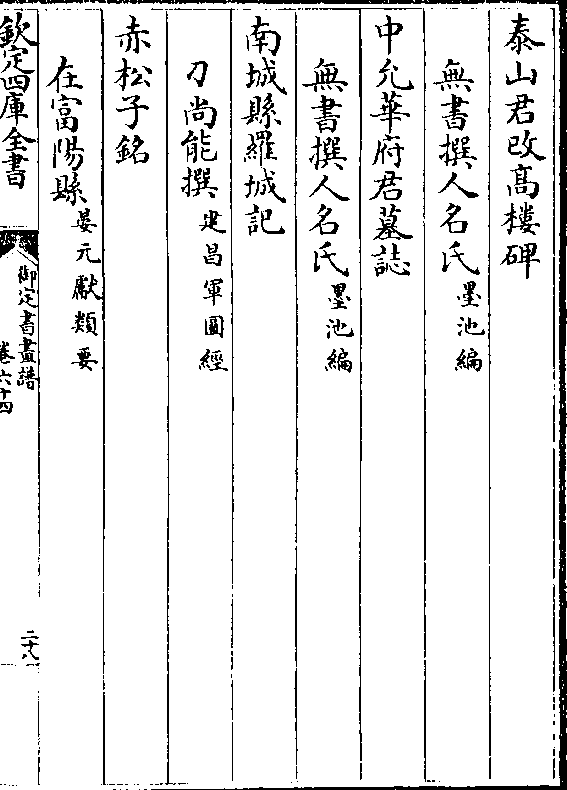 泰山君改高樓碑
無書撰人名氏墨池編
中允華府君墓誌
無書撰人名氏墨池編
南城縣羅城記
刀尚能撰建昌軍圖經
赤松子銘
在富陽縣晏元獻類要
欽定四庫全書
御定書畫譜
卷六十四
二十八